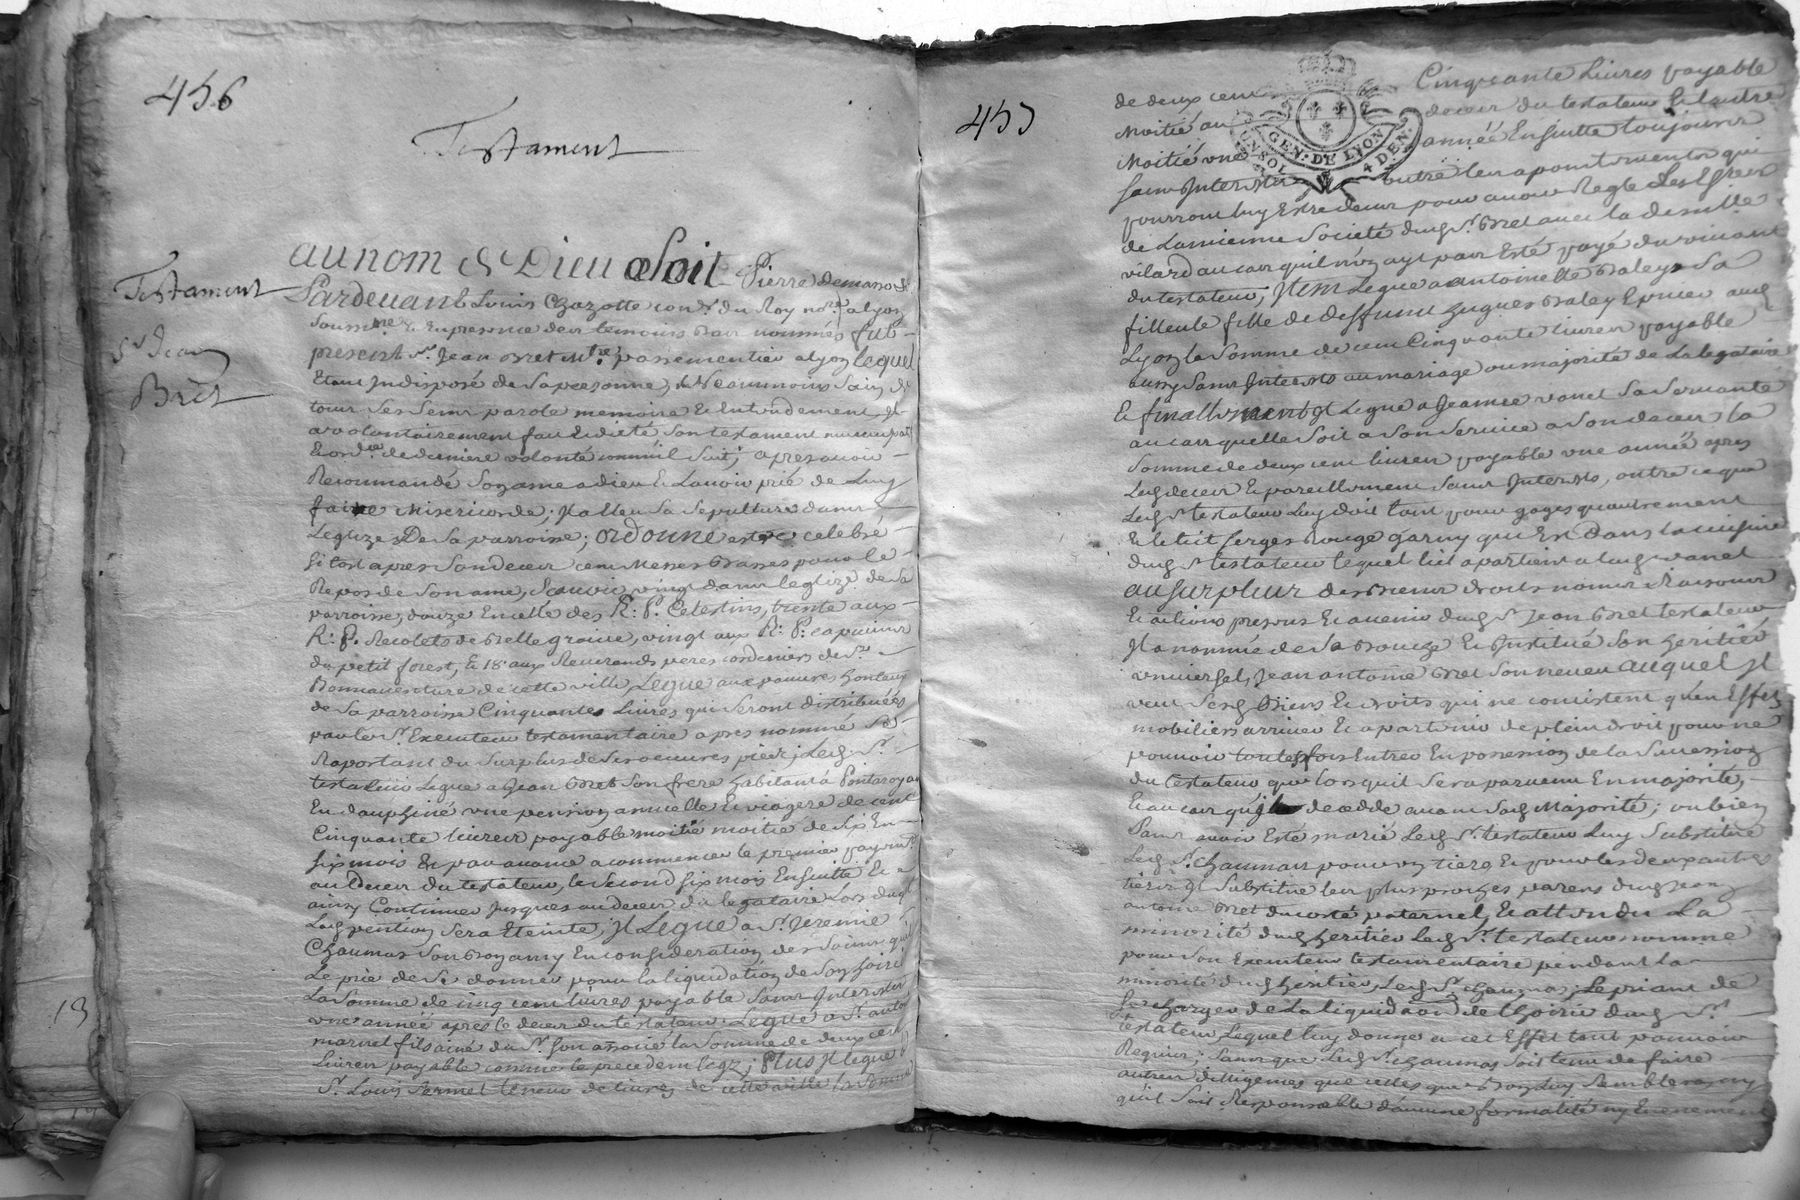 456
Testament
Testament
Sr Jean
Bret
au nom de Dieu soit
Pardevant Louis Chazotte cons.r du Roy no.re a Lyon Pierre Demasso
soussigné et en presence des temoins bas nommés fut
present Sr. Jean Bret M.tre passementier a Lyon lequel
Etant Indisposé de sa personne, et Neanmoins sain de
tous ses sens parole memoire et Entendement, Il
a volontairement fait et dicté son testament nuncupatif
et ord.re de derniere volonté comm'il suit; apres avoir
Recommandé son ame a dieu et L'avoir prié de Luy
faire Misericorde; Il a Eleu sa sepulture dans
L'eglize De sa parroisse; ordonne estre celebré
si tost apres son deces cent Messes Basses pour le
Repos de son ame, scavoir vingt dans l'eglize de sa
parroisse, douze en celle des R: P. Celestins, trente aux
R: P. Recolets de Belle grace, vingt aux R: P: capucins
du petit forest, et 18 aux Reverands peres cordeniers de St
Bonnaventure de cette ville, Legue aux pauvres honteux
de sa parroisse Cinquante Livres qui seront distribuéés
par le Sr. Executeur testamentaire apres nommé se
Raportant du surplus de ses oeuvres pies; Led. Sr.
testateur Legue a Jean Bret son frere habitant a Pontaroyan
En dauphiné une pension annuelle et viagere de cent
Cinquante livres payable moitié moitié de six En
six mois et par avance a commencer le premier payem.t
au deces du testateur, le second six mois Ensuitte et
ainsy Continuer jusques au deces du legataire Lors duquel
Lad. pention sera Eteinte; Il Legue a Sr. Jeremie
Chaumas son Bon amy En consideration des soins qu'il
Le prie de se donner pour la liquidation de son hoirie
La somme de cinq cent livres payable sans Interests
une année apres le deces du testateur. Legue a Sr. antoine
marnet fils ainé du Sr. son associé la somme de deux cent
Livres payable comme le precedent legz; Plus Il legue a
Sr. Louis Permet teneur de livres de cette ville la somme
13
455
GEN. DE LYON
4 DEN.
de deux cent Cinquante Livres payable
Moitié au deces du testateur et l'autre
Moitié une année Ensuitte toujours
sans Interests outre les apointements qui
pourront luy Estre deus pour avoir Regle Les Effets
de L'ancienne Societé dud. Sr. Bret avec la demlle
vilard au cas qu'il n'en ayt pas Esté payé du vivant
du testateur; Item Legue a antoinette Baley sa
filleule fille de deffunt hugues Baley Epicier aud.
Lyon la somme de cent Cinquante livres payable
aussy sans Interests au mariage ou majorité de La legataire
Et finallement Il Legue a Jeanne vanel sa servante
au cas quelle soit a son service a son deces la
somme de deux cent livres payable une année apres
Led. deces et pareillement sans Interests, outre ce que
Led. Sr. testateur Luy doit tant pour gages qu'autrement
Et le lit serges Rouge garny qui Est Dans la cuisine
dud. Sr. testateur lequel lit apartient a lad. vanel
au surplus des Biens droits noms et Raisons
Et actions presens et avenir dud. Sr. Jean Bret testateur
Il a nommé de sa Bouche et Institué son heritier
universel, Jean antoine Bret son neveu auquel Il
veut sesd. Biens et droits qui ne consistent qu'en Effets
mobiliers arriver et apartenir de plein droit pour ne
pouvoir toutesfois Entrer En possession de la succession
du testateur que lors qu'il sera parvenu En majorité,
Et au cas qu'il decedde avant sad. Majorité; ou bien
sans avoir Esté marié Led. Sr. testateur Luy substitue
Led. Sr. Chaumas pour un tiers et pour les deux autres
tiers Il substitue les plus proches parens dud. Jean
antoine Bret du costé paternel, Et attendu La
minorité dud. heritier Led. Sr. testateur nomme
pour son Executeur testamentaire pendant la
minorité dud. heritier, Led. Sr. Chaumas; Le priant de
se charger de La liquidaon de l'hoirie dud. Sr.
testateur Lequel luy donne a cet Effet tout pouvoir
Requis; sans que led. Sr. Chaumas soit tenu de faire
autres dilligences que celles que Bon luy semblera ny
qu'il soit Responsable d'aucune formalité ny Evenement